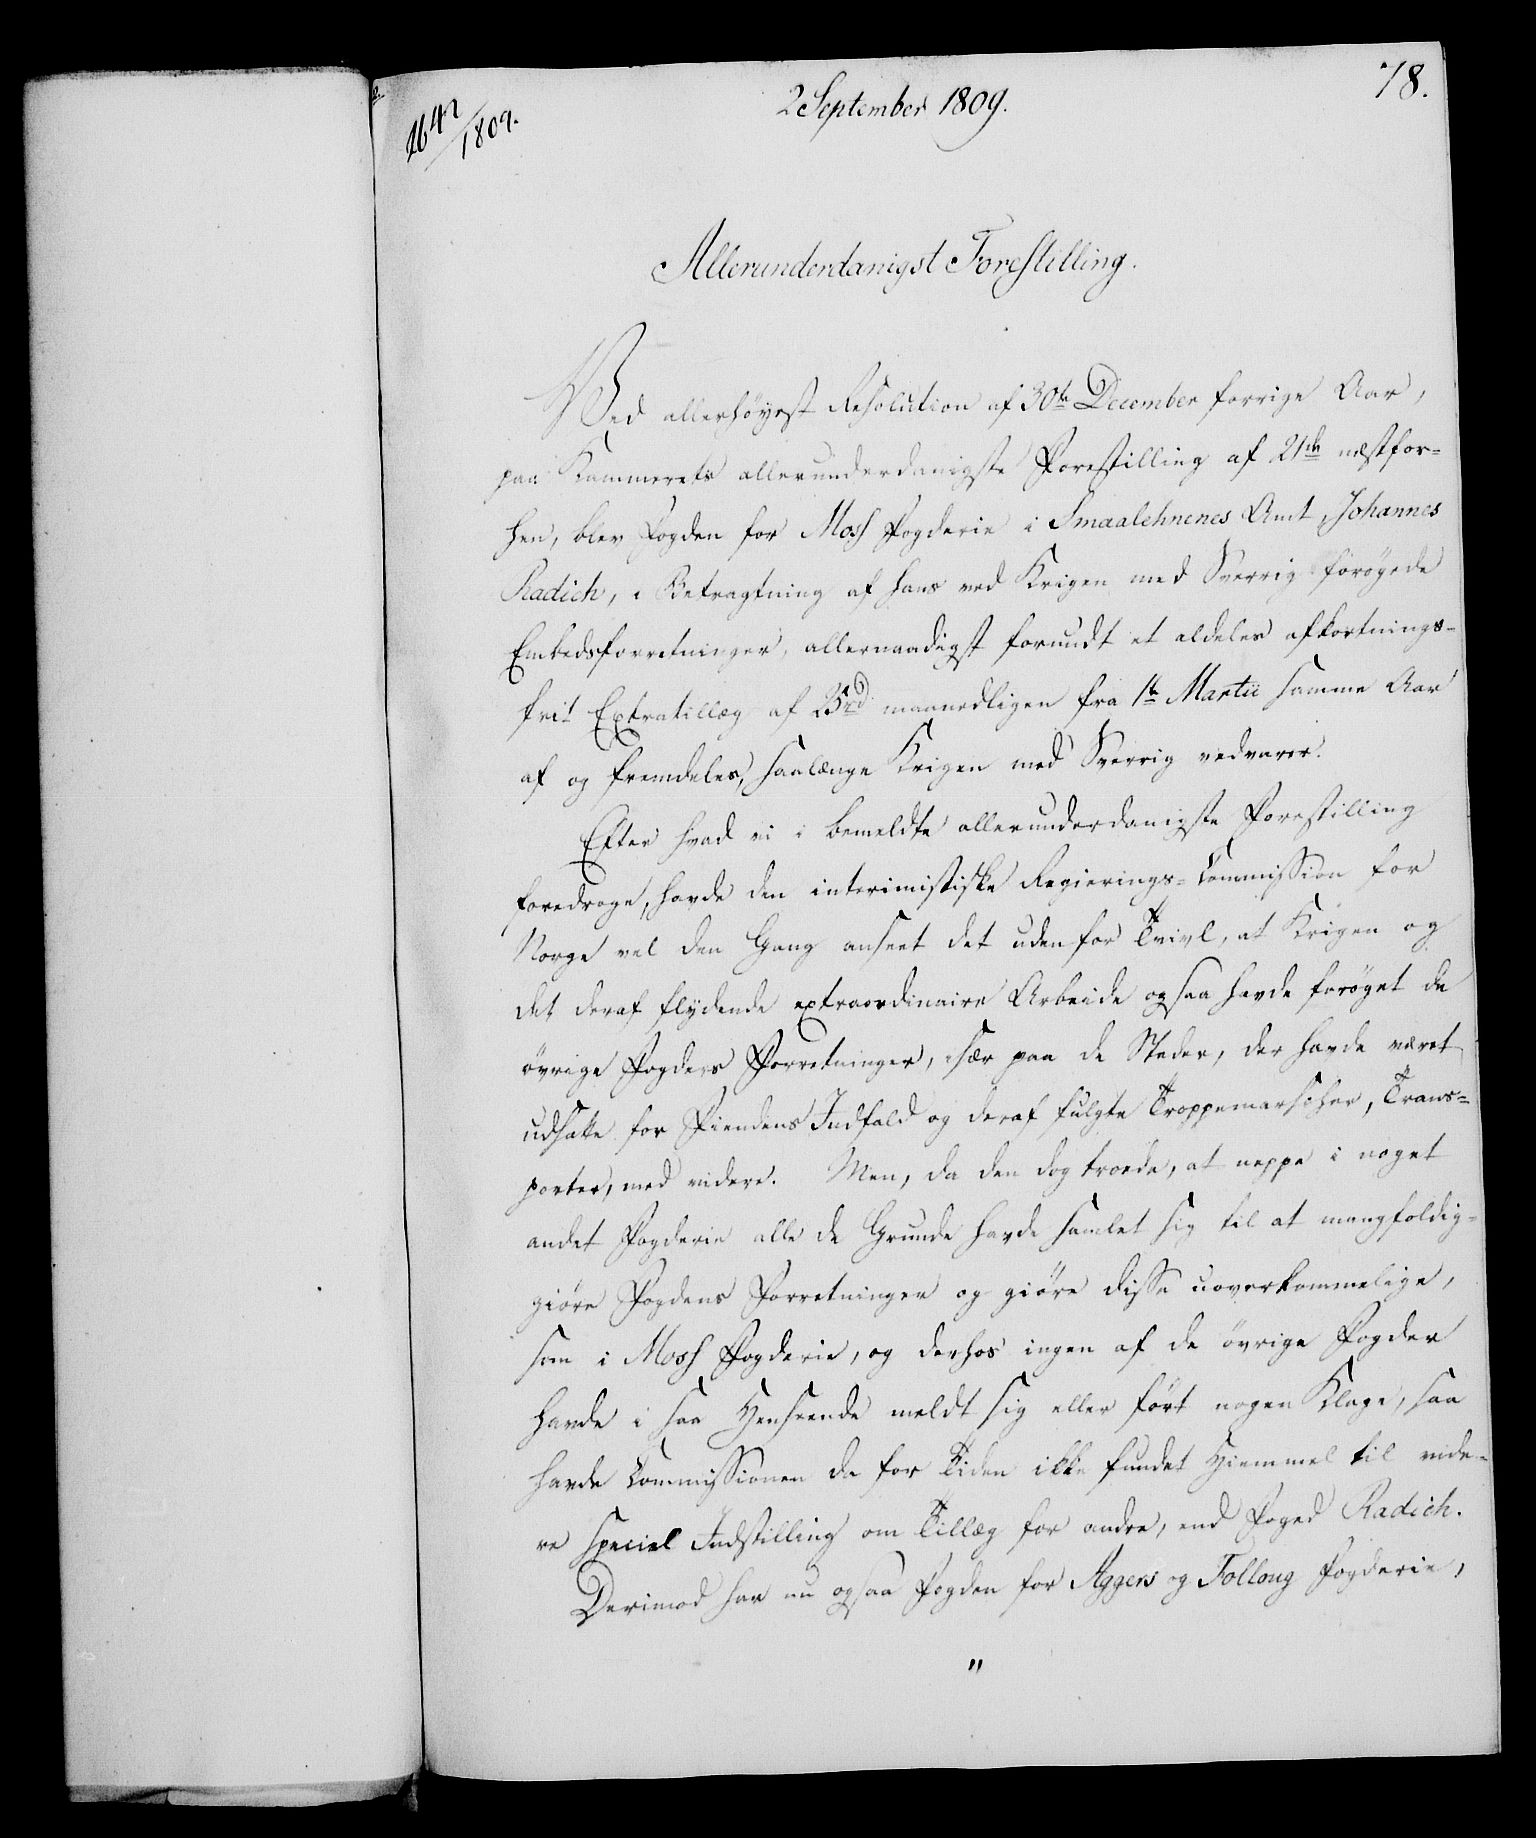 78.
2 September 1809.
1809.
Allerunderdanigst Forestilling.
Ved allerhöyest Resolution af 30te December forrige Aar,
paa Kammerets allerunderdanigste Forestilling af 21de næstfor=
hen, blev Fogden for Moss Fogderie i Smaalehnenes Amt, Johannes
Radich, i Betragtning af hans ved Krigen med Sverrig forögede
Embedsforretninger, allernaadigst forundt et aldeles afkortnings-
frit Extratillæg af rd maanedligen fra 1te Martii samme Aar
af og fremdeles, saalænge Krigen med Sverrig vedvarer.
Efter hvad vi i bemeldte allerunderdanigste Forestilling
foredroge, havde den interimistiske Regierings=Commission for
Norge vel den Gang anseet det uden for Tvivl, at Krigen og
det deraf flydende extraordinaire Arbeide ogsaa havde foröget de
övrige Fogders Forretninger, især paa de Steder, der havde været
udsatte for Fiendens Indfald og deraf fulgte Troppemarscher, Trans=
porter, med videre. Men, da den dog troede, at neppe i noget
andet Fogderie alle de Grunde havde samlet sig til at mangfoldig=
giöre Fogdens Forretninger og giöre disse uoverkommelige,
som i Moss Fogderie, og derhos ingen af de övrige Fogder
havde i saa Henseende meldt sig eller fört nogen Klage, saa
havde Commissionen da for Tiden ikke fundet Hiemmel til vide-
re special Indstilling om Tillæg for andre, end Foged Radich.
Derimod har nu ogsaa Fogden for Aggers og Folloug Fogderie,
"